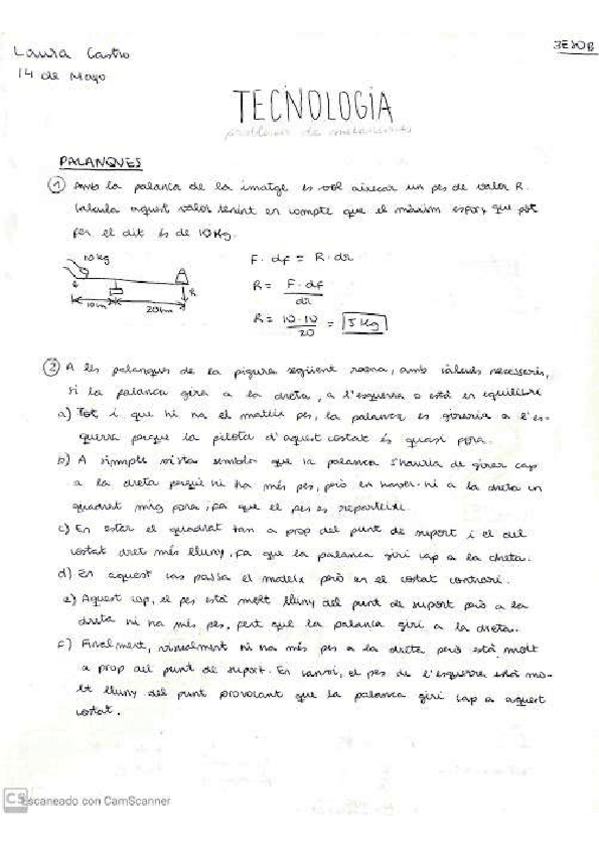 Laura Castro
3ESOB
14 de Mayo
TECNOLOGIA
problemes de mecanismes
PALANQUES
① Amb la palanca de la imatge es vol aixecar un pes de valor R.
Calcula aquest valor tenint en compte que el màxim esforç que pot
fer el dit és de 10 Kg.
10 kg
R
10cm
20cm
F · df = R · dr
R = F · df / dr
R = 10 · 10 / 20 = 5 Kg
② A les palanques de la figura següent raona, amb càlculs necessaris,
si la palanca gira a la dreta, a l'esquerra o està en equilibri
a) Tot i que hi ha el mateix pes, la palanca es giraria a l'es-
querra perque la pilota d'aquest costat és quasi fora.
b) A simple vista sembla que la palanca s'hauria de girar cap
a la dreta perquè hi ha més pes, però en haver-hi a la dreta un
quadrat mig fora, fa que el pes es reparteixi.
c) En estar el quadrat tan a prop del punt de suport i el del
costat dret més lluny, fa que la palanca giri cap a la dreta.
d) En aquest cas passa el mateix però en el costat contrari.
e) Aquest cop, el pes està molt lluny del punt de suport però a la
dreta hi ha més pes, fent que la palanca giri a la dreta.
f) Finalment, visualment hi ha més pes a la dreta però està molt
a prop del punt de suport. En canvi, el pes de l'esquerra està mo-
lt lluny del punt provocant que la palanca giri cap a aquest
costat.
CS Escaneado con CamScanner